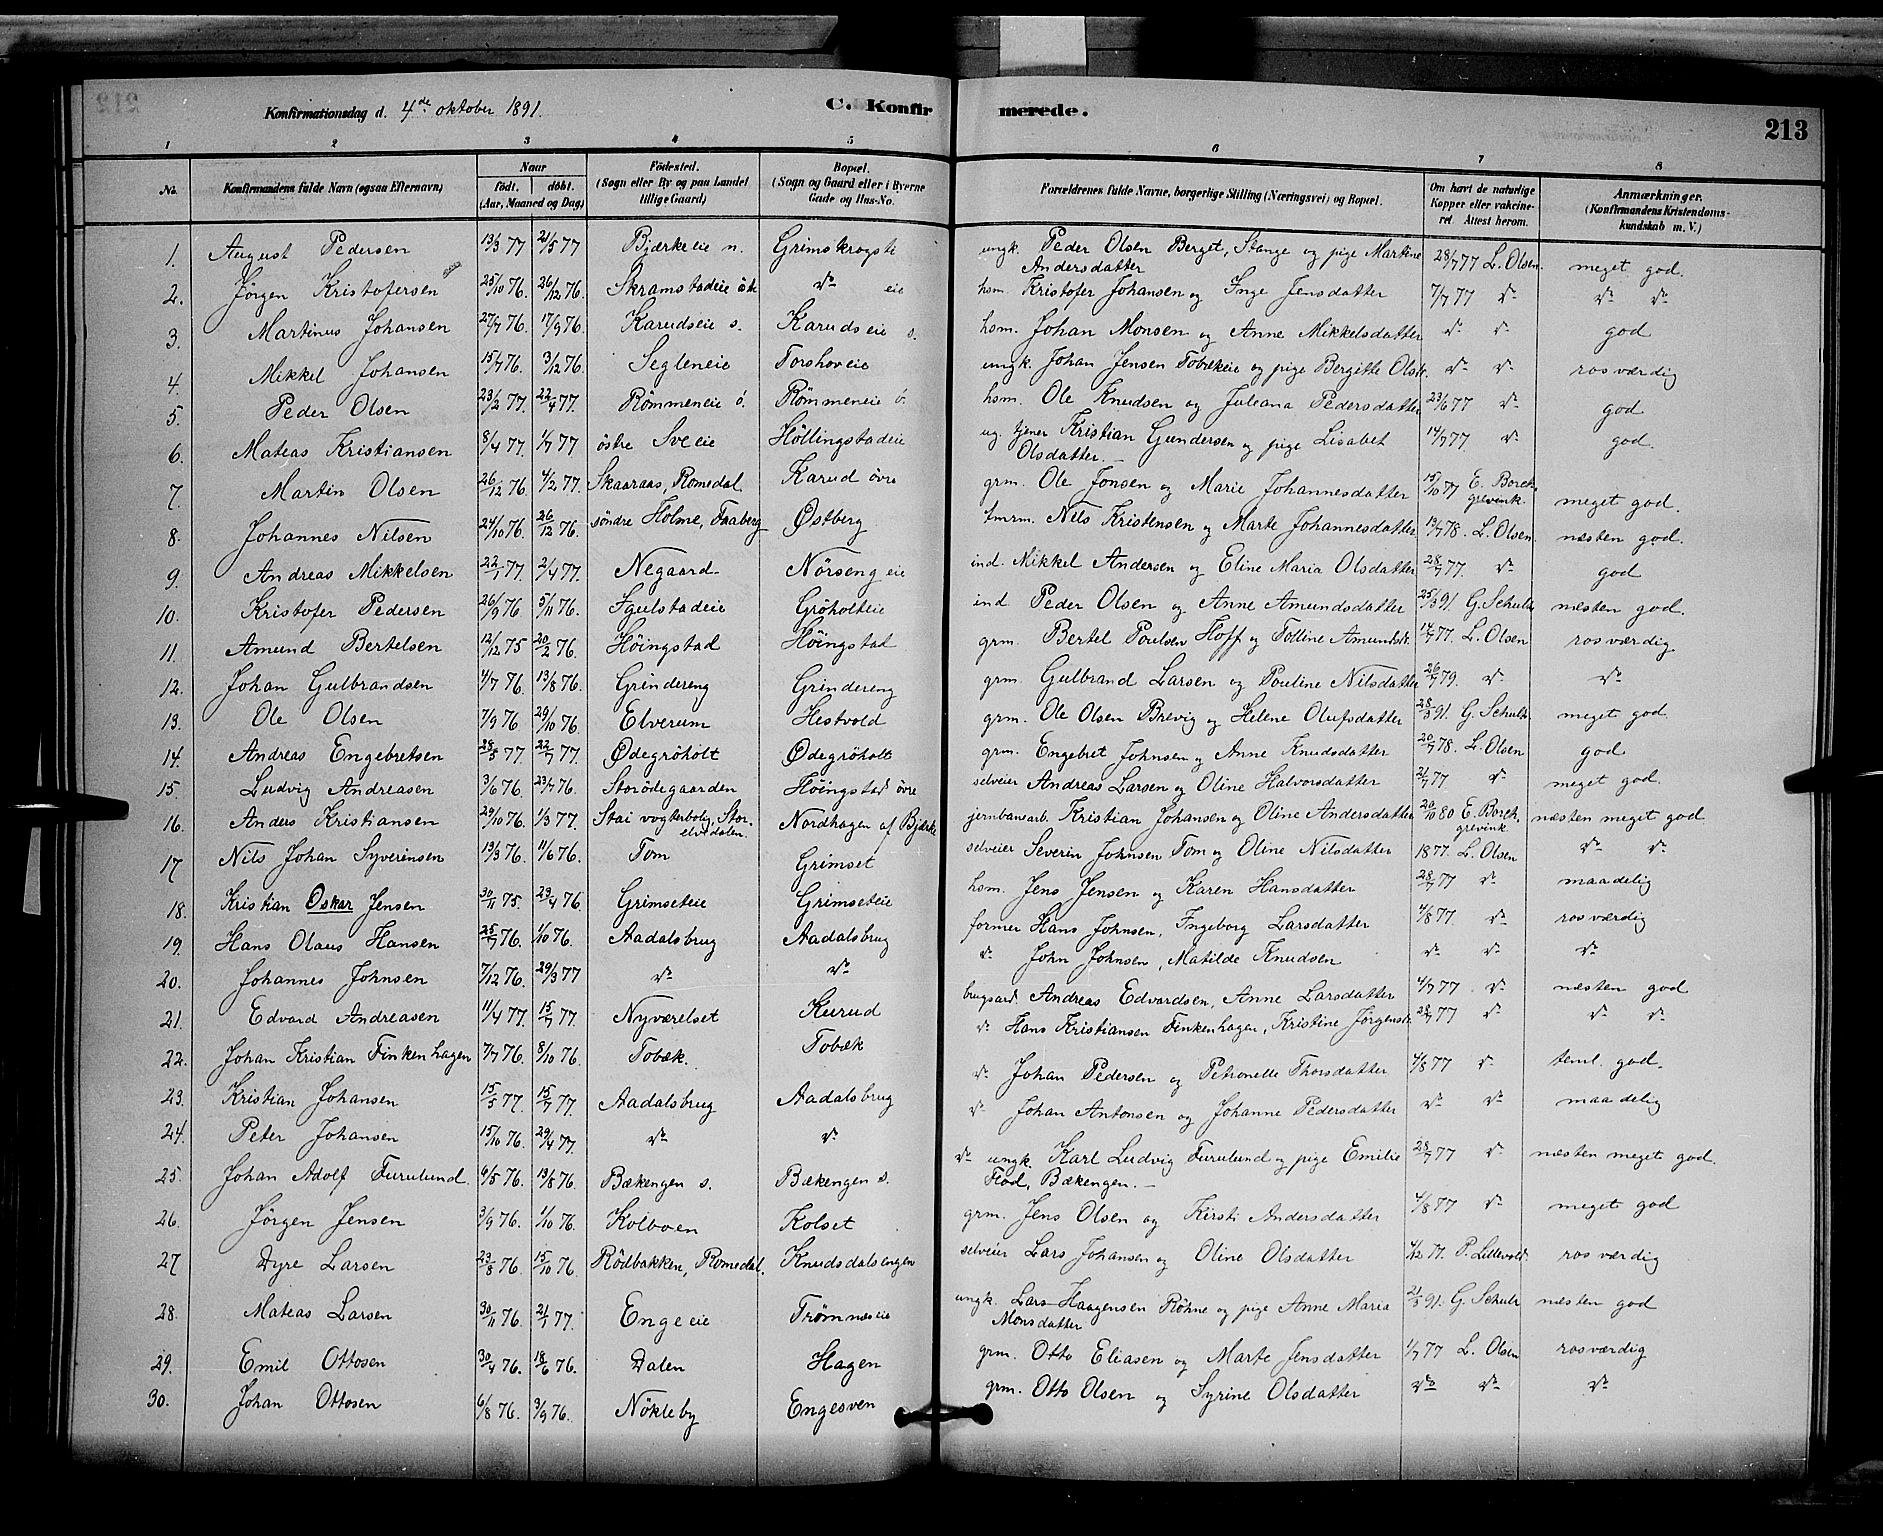 Konfirmationsdag d. 4de oktober 1891. C. Konfirmerede. 213
1 2 3 4 5 6 7 8
No. Konfirmandens fulde Navn (ogsaa Efternavn) Naar født. døbt. (Aar, Maaned og Dag) Födested. (Sogn eller By og paa Landet tillige Gaard) Bopæl. (Sogn og Gaard eller i Byerne Gade og Hus-No. Forældrenes fulde Navne, borgerlige Stilling (Næringsvei) og Bopæl. Om havt de naturlige Kopper eller vakcineret. Attest herom. Anmærkninger. (Konfirmandens Kristendomskundskab m. V.)
1. August Pedersen 13/3 77 21/5 77 Bjærkeeie n. Grimskrogstł ungk. Peder Olsen Berget, Stange og pige Martine Andersdatter 28/7 77 L. Olsen. meget god.
2. Jörgen Kristofersen 25/10 76. 26/12 76. Skramstadeie östr do eie hsm. Kristofer Johansen og Inge Jensdatter 7/7 77 do do do
3. Martinus Johansen 27/7 76. 17/9 76. Karudseie s. Karudseie s. hsm. Johan Monsen og Anne Mikkelsdatter do do god
4. Mikkel Johansen 15/7 76. 3/12 76. Segleneie Torshoveie ungk. Johan Jensen Tobækeie og pige Bergitte Olsdr. do do rosværdig
5. Peder Olsen 23/2 77. 22/4 77. Römmeneie ö. Römmeneie ö. hsm. Ole Knudsen og Juleana Pedersdatter 23/6 77 do god
6. Mateas Kristiansen 8/4 77 1/7 77 östre Sveeie Höllingstadeie ug. tjener Kristian Gundersen og pige Lisabet Olsdatter. 14/7 77 do god.
7. Martin Olsen 26/12 76. 4/2 77. Skaaraas, Romedal Karud övre grm. Ole Jonsen og Marie Johannesdatter 15/10 77 E. Borchgrevink meget god.
8. Johannes Nilsen 24/10 76. 26/12 76. söndre Holme, Faaberg Østberg tmrm. Nils Kristensen og Marte Johannesdatter 13/7 78. L. Olsen. næsten god.
9. Andreas Mikkelsen 22/1 77. 2/4 77. Negaard Nörseng eie ind. Mikkel Andersen og Eline Maria Olsdatter 28/7 77. do god
10. Kristofer Pedersen 26/9 76 5/11 76. Igelstadeie Gröholteie ind Peder Olsen og Anne Amundsdatter 25/3 91. G. Schultz næsten god.
11. Amund Bertelsen 12/12 75 20/2 76. Höingstad Höingstad grm. Bertel Poulsen Hoff og Tolline Amundsdr. 14/7 77. L. Olsen rosværdig.
12. Johan Gulbrandsen 4/7 76. 13/8 76. Grindereng Grindereng grm. Gulbrand Larsen og Pouline Nilsdatter 26/7 79. do do
13. Ole Olsen 7/9 76 29/10 76. Elverum Hestvold grm. Ole Olsen Brevig og Helene Olufsdatter 28/3 91. G. Schultz meget god.
14. Andreas Engebretsen 28/5 77. 22/7 77. Ødegröholt Ødegröholt grm. Engebret Johnsen og Anne Knudsdatter 20/7 78. L. Olsen god
15. Ludvig Andreasen 3/6 76. 23/7 76. Storödegaarden Höingstad övre selveier Andreas Larsen og Oline Halvorsdatter 21/7 77 do meget god.
16. Anders Kristiansen 29/10 76. 1/3 77. Stai vogterbolig, Storelvedalen. Nordhagen af Bjærke jernbanearb. Kristian Johansen og Oline Andersdatter 20/10 80 E. Borchgrevink næsten meget god
17 Nils Johan Syverinsen 13/3 76. 11/6 76. Tom Grimset selveier Severin Johnsen Tom og Oline Nilsdatter 1877. L. Olsen do do
18. Kristian Oskar Jensen 30/11 75. 23/4 76. Grimseteie Grimseteie hsm. Jens Jensen og Karen Hansdatter 28/7 77 do maadelig
19. Hans Olaus Hansen 25/7 76. 1/10 76. Aadalsbrug Aadalsbrug former Hans Johnsen, Ingeborg Larsdatter 4/8 77. do rosværdig
20. Johannes Johnsen 7/12 76. 29/3 77 do do do John Johnsen, Matilde Knudsen do do do
21. Edvard Andreasen 11/4 77. 15/7 77. Nyværelset Kurud brugsarb. Andreas Edvardsen, Anne Larsdatter 4/7 77 do næsten god
22. Johan Kristian Finkenhagen 7/7 76. 8/10 76 Tobæk. Tobæk do Hans Kristiansen Finkenhagen, Kristine Jörgensdr. 28/7 77 do do do
23. Kristian Johansen 15/5 77. 15/7 77. Aadalsbrug Aadalsbrug do Johan Pedersen og Petronelle Thorsdatter 4/8 77 do teml. god.
24. Peter Johansen 15/10 76. 29/4 77. do do do Johan Antonsen og Johanne Pedersdatter do do maadelig
25. Johan Adolf Furulund. 6/5 76. 13/8 76. Bækengen s. Bækengen s. do ungk. Karl Ludvig Furulund og pige Emilie Flod, Bækengen. 28/7 77 do næsten meget god.
26. Jörgen Jensen 3/9 76. 1/10 76. Kolboen Kolset grm. Jens Olsen og Kirsti Andersdatter 4/8 77 do meget god
27 Dyre Larsen 23/8 76. 15/10 76. Rödbakken, Romedal. Knudsdalsengen selveier Lars Johansen og Oline Olsdatter 4/12 77. P. Lillevold. rosværdig
28. Mateas Larsen 30/11 76. 21/1 77. Engeeie Trömnæseie ungk. Lars Haagensen Röhne og pige Anne Maria Monsdatter 21/3 91. G. Schultz næsten god
29. Emil Ottosen 30/4 76. 18/6 76. Dalen Hagen grm. Otto Eliasen og Marte Jensdatter 1/7 77 L. Olsen rosværdig
30. Johan Ottosen 6/8 76. 3/9 76. Nökleby Engesven grm. Otto Olsen og Syrine Olsdatter do do do